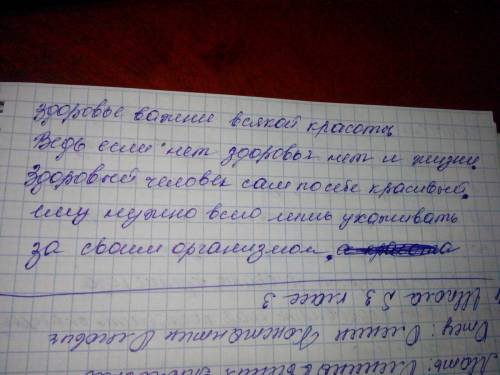 Здоровье важние всякой красоты
Ведь если нет здоровья нет и жизни.
Здоровый человек сам посебе красивый.
ему нужно всего лишь ухаживать
за своим организмом.
Школа 53 класс 3
Отец: Константин Олегович
Мать: